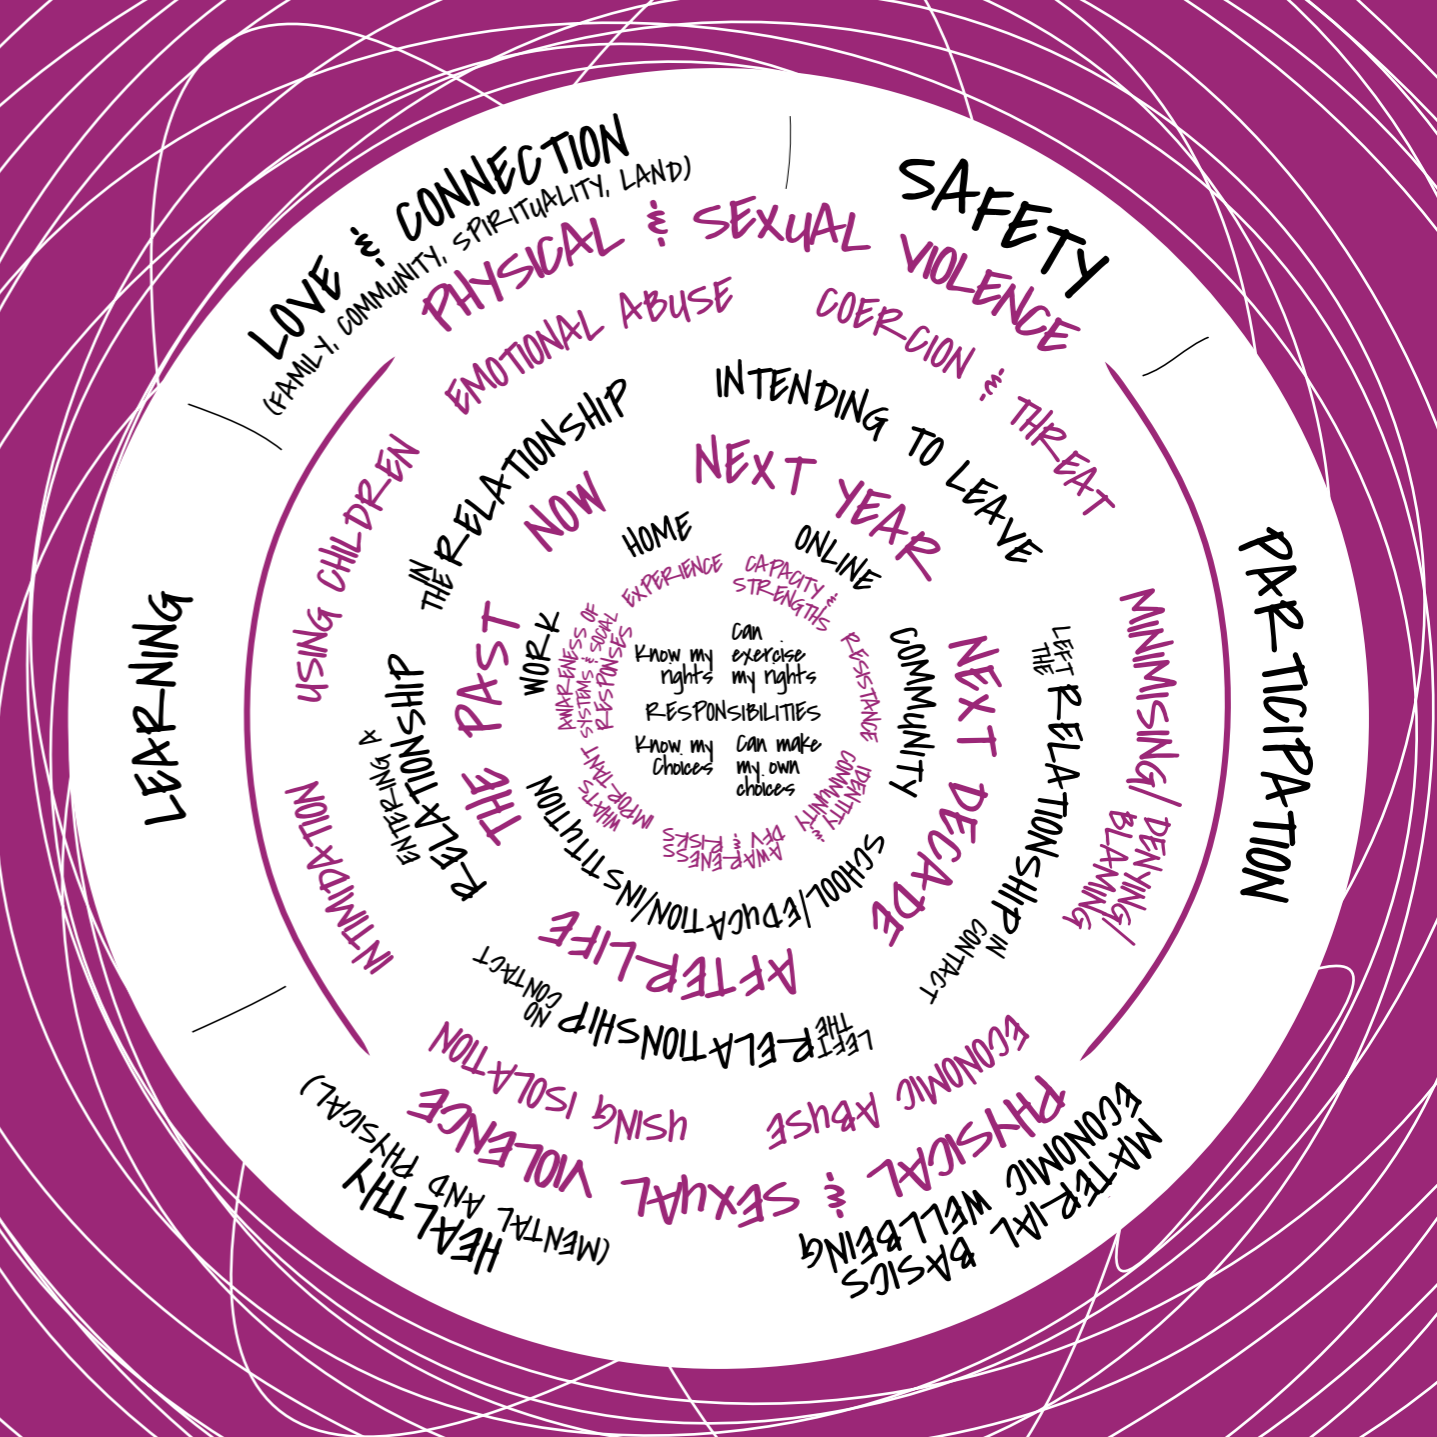 LOVE & CONNECTION
(FAMILY, COMMUNITY, SPIRITUALITY, LAND)
SAFETY
PARTICIPATION
MATERIAL BASICS
ECONOMIC WELLBEING
HEALTHY
(MENTAL AND PHYSICAL)
LEARNING
PHYSICAL & SEXUAL VIOLENCE
PHYSICAL & SEXUAL VIOLENCE
EMOTIONAL ABUSE
COERCION & THREAT
MINIMISING/ DENYING/
BLAMING
ECONOMIC ABUSE
USING ISOLATION
INTIMIDATION
USING CHILDREN
IN
THE RELATIONSHIP
INTENDING TO LEAVE
LEFT
THE RELATIONSHIP IN
CONTACT
LEFT
THE RELATIONSHIP NO
CONTACT
ENTERING A
RELATIONSHIP
NOW
NEXT YEAR
NEXT DECADE
AFTERLIFE
THE PAST
HOME
ONLINE
COMMUNITY
SCHOOL/EDUCATION/INSTITUTION
WORK
EXPERIENCE
CAPACITY &
STRENGTHS
RESISTANCE
IDENTITY &
COMMUNITY
AWARENESS
DFV & RISKS
WHATS
IMPORTANT
AWARENESS OF
SYSTEMS & SOCIAL
RESPONSES
Know my
rights
Can
exercise
my rights
RESPONSIBILITIES
Know my
Choices
Can make
my own
choices